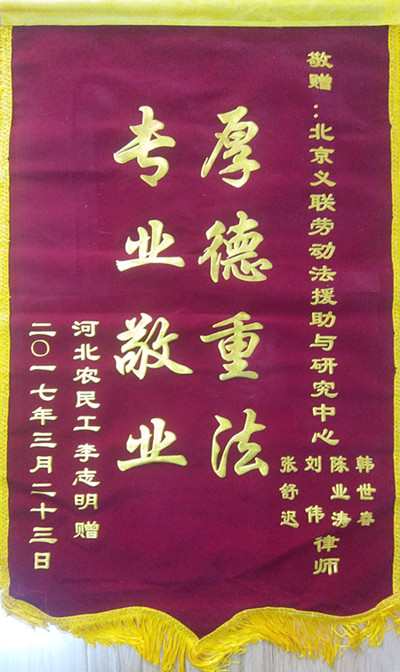 敬赠：北京义联劳动法援助与研究中心
韩世春
陈业涛
刘伟
张舒迟
律师
厚德重法
专业敬业
河北农民工李志明赠
二〇一七年三月二十三日